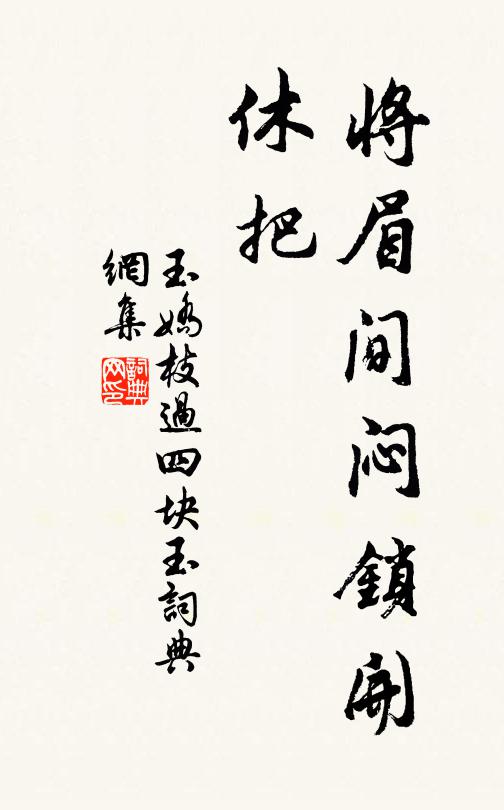 將眉間悶鎖開
休把
玉嬌枝過四块玉詞典
網集
詞典
网印